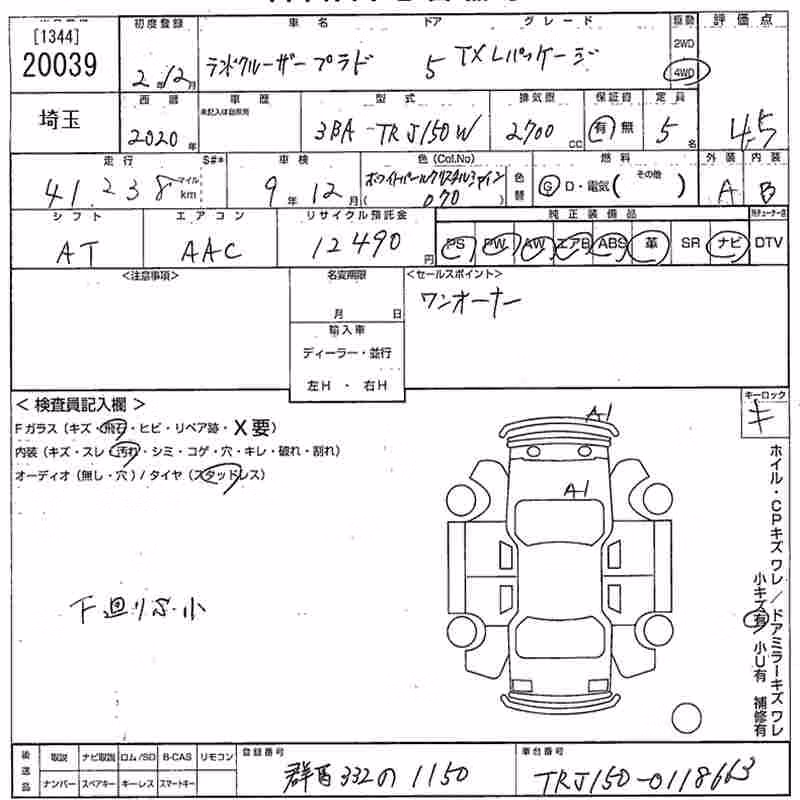 [1344]
20039
初度登録
車名
ドア
グレード
駆動
評価点
2年12月
ランドクルーザープラド
5
TXLパッケージ
2WD
4WD
埼玉
西暦
車歴
型式
排気量
保証書
定員
未記入は自家用
2020年
3BA-TRJ150W
2700cc
有 無
5名
4.5
走行
S#*
車検
色(Col.No)
燃料
外装
内装
41,238
マイル
km
9年12月
ホワイトパールクリスタルシャイン
(070)
色替
G D・電気(その他)
A
B
シフト
エアコン
リサイクル預託金
純正装備品
AT
AAC
12490円
PS PW AW エアB ABS 革 SR ナビ DTV
<注意事項>
名変期限
<セールスポイント>
月 日
ワンオーナー
輸入車
ディーラー・並行
左H・右H
<検査員記入欄>
キーロック
Fガラス(キズ・飛石・ヒビ・リペア跡・X要)
キ
内装(キズ・スレ・汚れ・シミ・コゲ・穴・キレ・破れ・割れ)
オーディオ(無し・穴)/タイヤ(スタッドレス)
A1
A1
下廻りS・小
ホイル・CPキズワレ/ドアミラーキズワレ
小キズ有 小U有 補修有
後送品
取説 ナビ取説 ロム/SD B-CAS リモコン
ナンバー スペアキー キーレス スマートキー
登録番号
群馬332の1150
車台番号
TRJ150-0118663